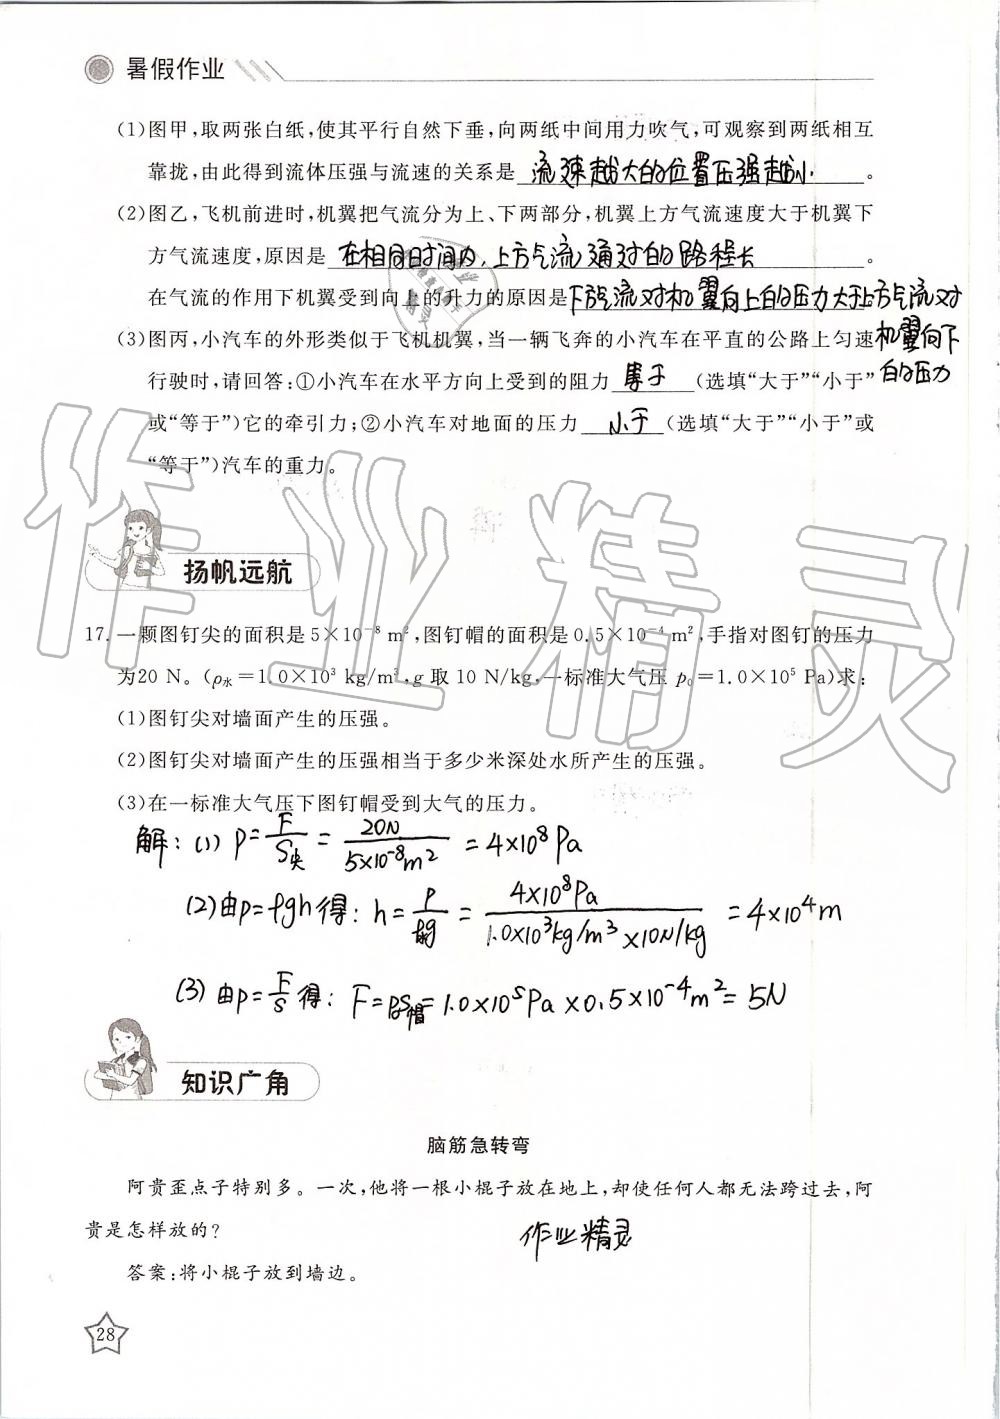 暑假作业
(1)图甲,取两张白纸,使其平行自然下垂,向两纸中间用力吹气,可观察到两纸相互
靠拢,由此得到流体压强与流速的关系是 流速越大的位置压强越小 。
(2)图乙,飞机前进时,机翼把气流分为上、下两部分,机翼上方气流速度大于机翼下
方气流速度,原因是 在相同时间内,上方气流通过的路程长 。
在气流的作用下机翼受到向上的升力的原因是下方气流对机翼向上的压力大于上方气流对
机翼向下
的压力
(3)图丙,小汽车的外形类似于飞机机翼,当一辆飞奔的小汽车在平直的公路上匀速
行驶时,请回答:①小汽车在水平方向上受到的阻力 等于 (选填“大于”“小于”
或“等于”)它的牵引力;②小汽车对地面的压力 小于 (选填“大于”“小于”或
“等于”)汽车的重力。
扬帆远航
17. 一颗图钉尖的面积是 5×10⁻⁸ m²,图钉帽的面积是 0.5×10⁻⁴ m²,手指对图钉的压力
为20 N。(ρ水=1.0×10³ kg/m³,g 取 10 N/kg,一标准大气压 p₀=1.0×10⁵ Pa)求:
(1)图钉尖对墙面产生的压强。
(2)图钉尖对墙面产生的压强相当于多少米深处水所产生的压强。
(3)在一标准大气压下图钉帽受到大气的压力。
解:(1) P=F/S尖=20N/5×10⁻⁸m²=4×10⁸Pa
(2)由p=ρgh得:h=p/ρg=4×10⁸Pa/1.0×10³kg/m³×10N/kg=4×10⁴m
(3) 由p=F/S得:F=p₀S帽=1.0×10⁵Pa×0.5×10⁻⁴m²=5N
知识广角
脑筋急转弯
阿贵歪点子特别多。一次,他将一根小棍子放在地上,却使任何人都无法跨过去,阿
贵是怎样放的?
作业精灵
答案:将小棍子放到墙边。
28
作业精灵